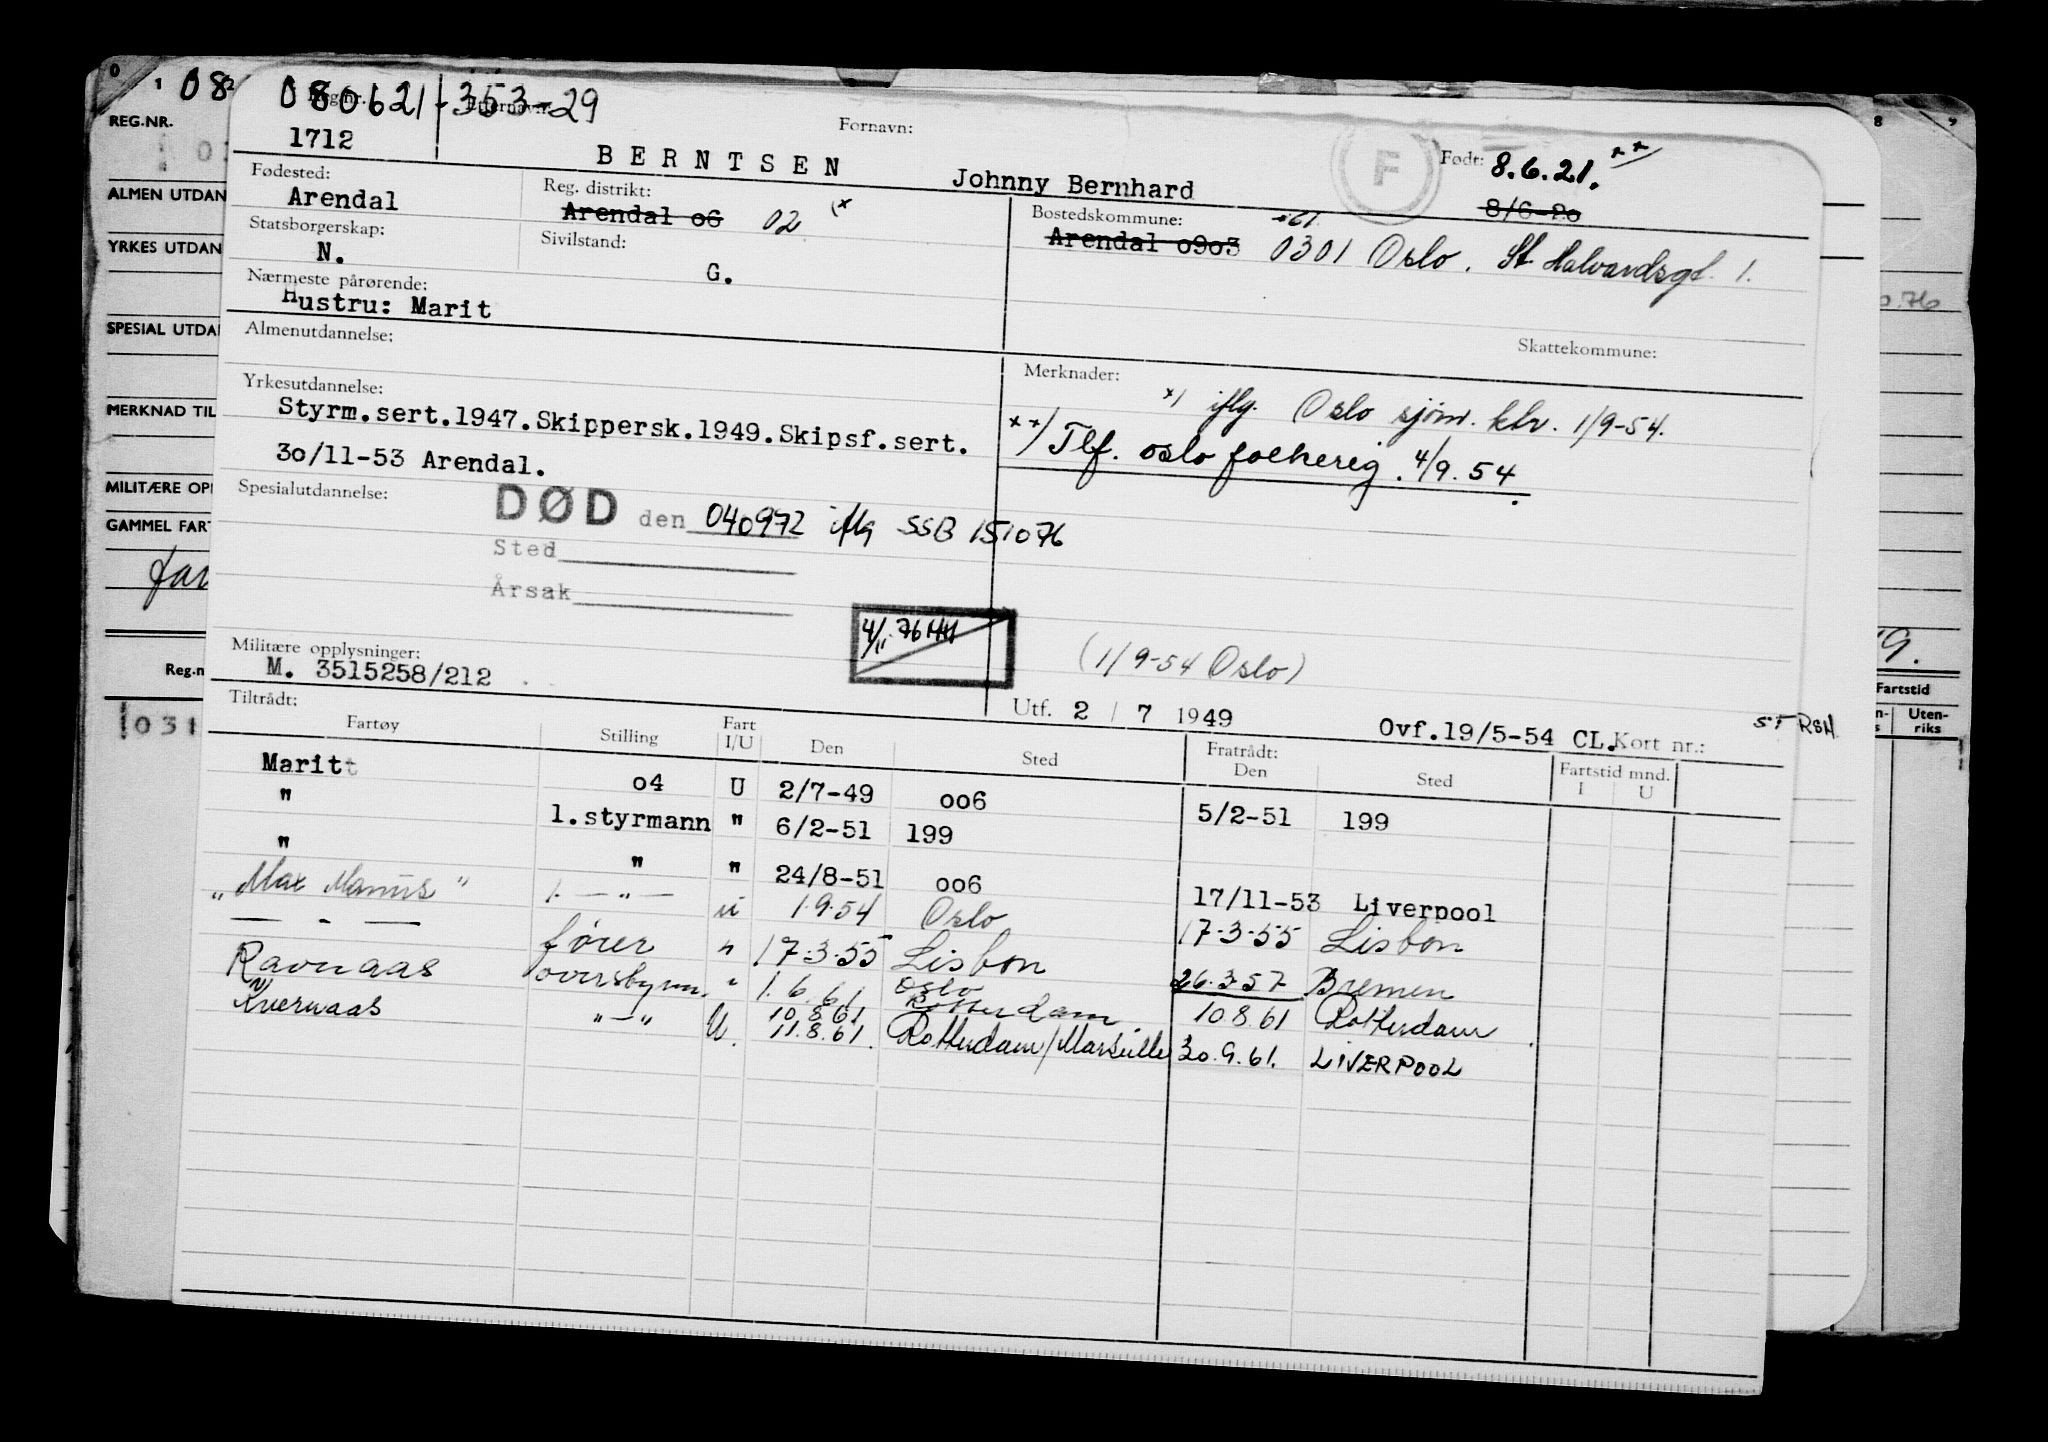 0 1 08
REG.NR.
ALMEN UTDAN
YRKES UTDAN
SPESIAL UTDA
MERKNAD TIL
MILITÆRE OPP
GAMMEL FART
Reg.n
031
080621-353-29
1712
BERNTSEN
Fornavn:
Johnny Bernhard
F
Født: 8.6.21. **
8/6-20
Fødested:
Arendal
Reg. distrikt:
Arendal o6 02 (x
Bostedskommune:
Arendal o9o3 0301 Oslo. St. Halvardsgt. 1.
Statsborgerskap:
N.
Sivilstand:
G.
Nærmeste pårørende:
Hustru: Marit
Skattekommune:
Almenutdannelse:
Merknader:
x) iflg. Oslo sjøm. ktr. 1/9-54.
xx) Tlf. oslo folkereg. 4/9.54
Yrkesutdannelse:
Styrm.sert.1947.Skippersk.1949.Skipsf.sert.
3o/11-53 Arendal.
Spesialutdannelse:
DØD den 040972 iflg SSB 151076
Sted
Årsak
4/11 76 HH
(1/9-54 Oslo)
Militære opplysninger:
M. 3515258/212
Utf. 2 / 7 1949 Ovf.19/5-54 CL. Kort nr.: ST RSH
Tiltrådt:
Fartøy Stilling Fart I/U Den Sted Fratrådt: Den Sted Fartstid mnd. I U
Maritt o4 U 2/7-49 oo6 5/2-51 199
" 1.styrmann " 6/2-51 199
" " " 24/8-51 oo6 17/11-53 Liverpool
"Max Manus" 1. — " — u 1.9.54 Oslo 17.3.55 Lisbon
— " — fører " 17.3.55 Lisbon 26.3.57 Bremen
Ravnaas overstyrm. " 1.6.61 Oslo 10.8.61 Rotterdam
10.8.61 Rotterdam
Kvernaas "—" U. 11.8.61. Rotterdam/Marseille 30.9.61. LIVERPOOL
8 9
Fartstid
Uten-
riks